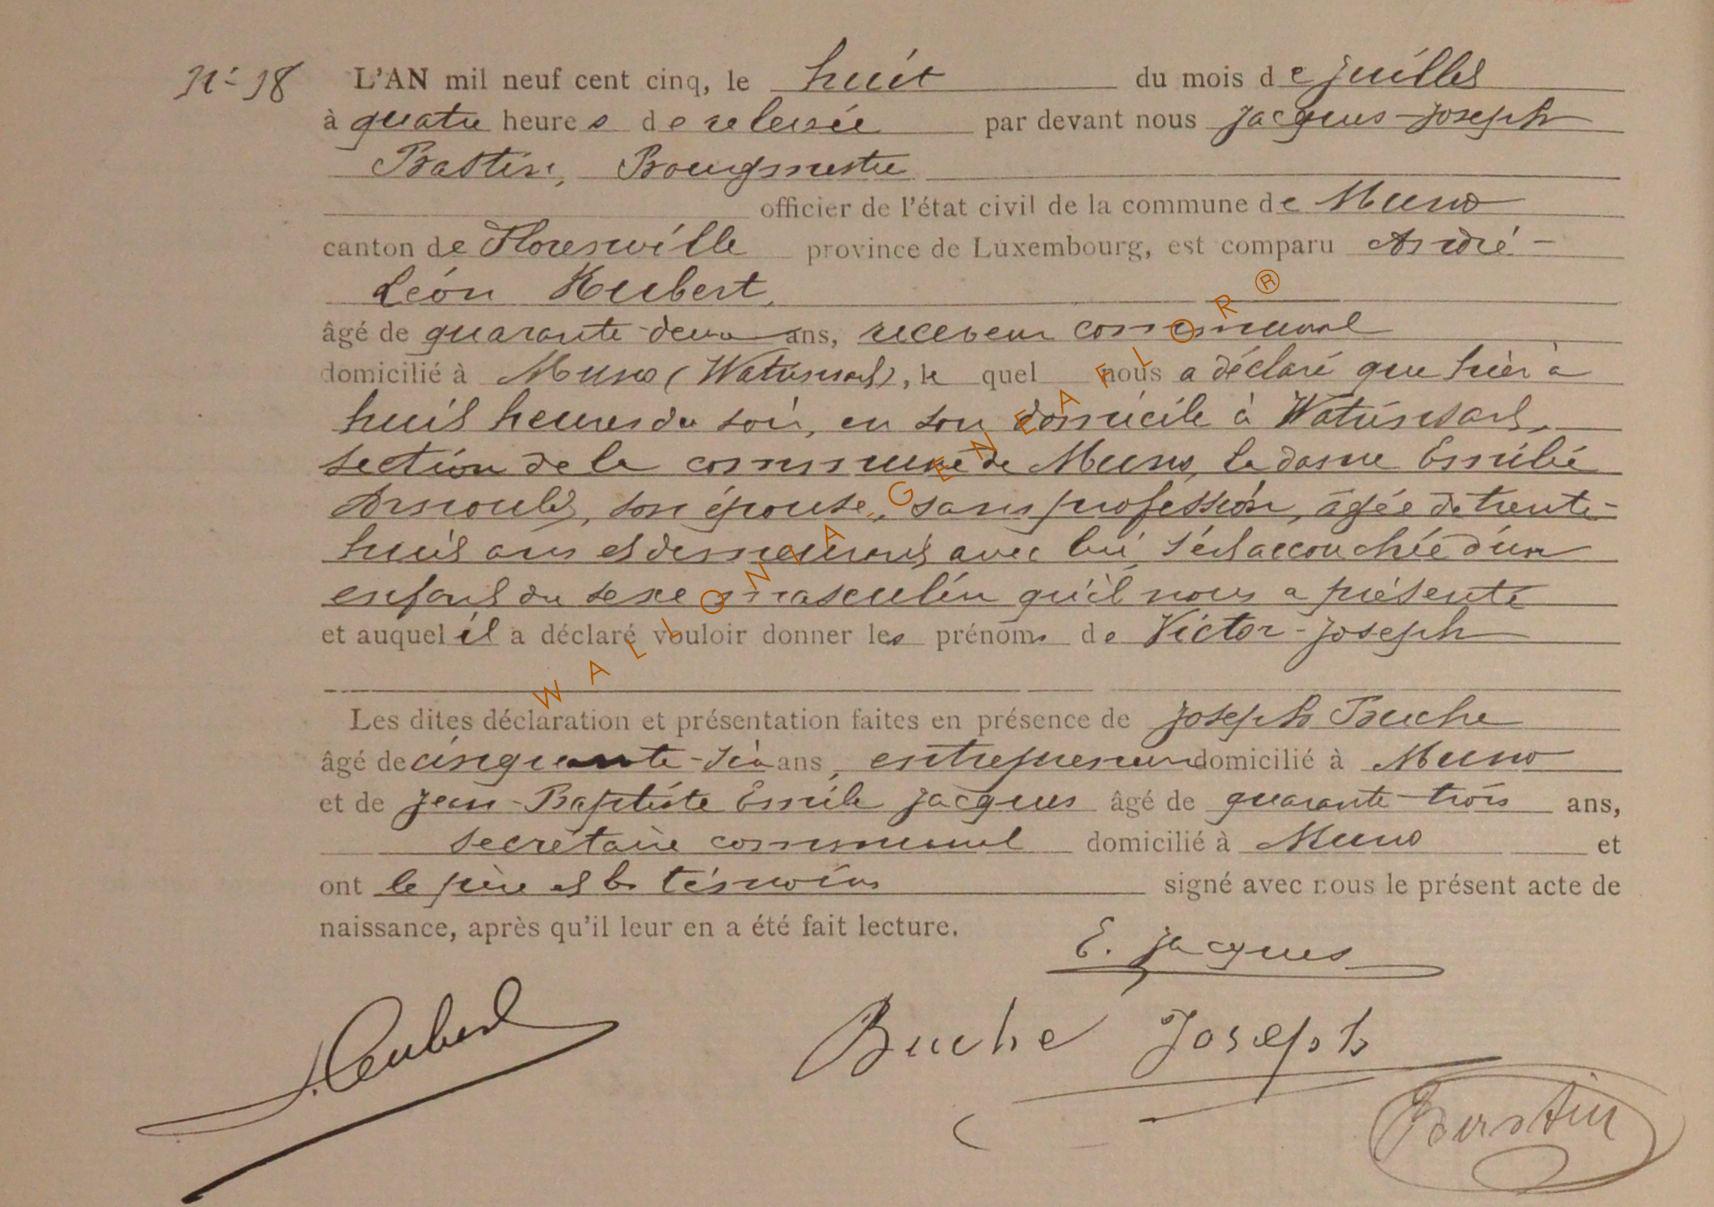 N° 18 L'AN mil neuf cent cinq, le huit du mois de juillet
à quatre heures de relevée par devant nous Jacques-Joseph
Bastin, Bourgmestre
officier de l'état civil de la commune de Muno
canton de Florenville province de Luxembourg, est comparu André-
Léon Hubert,
âgé de quarante-deux ans, receveur communal
domicilié à Muno (Watrinsart), le quel nous a déclaré que hier à
huit heures du soir, en son domicile à Watrinsart,
section de la commune de Muno, la dame Emilie
Arnould, son épouse, sans profession, âgée de trente-
huit ans et demeurant avec lui, s'est accouchée d'un
enfant du sexe masculin qu'il nous a présenté
et auquel il a déclaré vouloir donner les prénoms de Victor-Joseph
Les dites déclaration et présentation faites en présence de Joseph Buche
âgé de cinquante-six ans, entrepreneur domicilié à Muno
et de Jean-Baptiste Emile Jacques âgé de quarante-trois ans,
secrétaire communal domicilié à Muno et
ont le père et les témoins signé avec nous le présent acte de
naissance, après qu'il leur en a été fait lecture.
E. Jacques
Buche Joseph
Bastin
WALLONIA GENEAFLOR ®